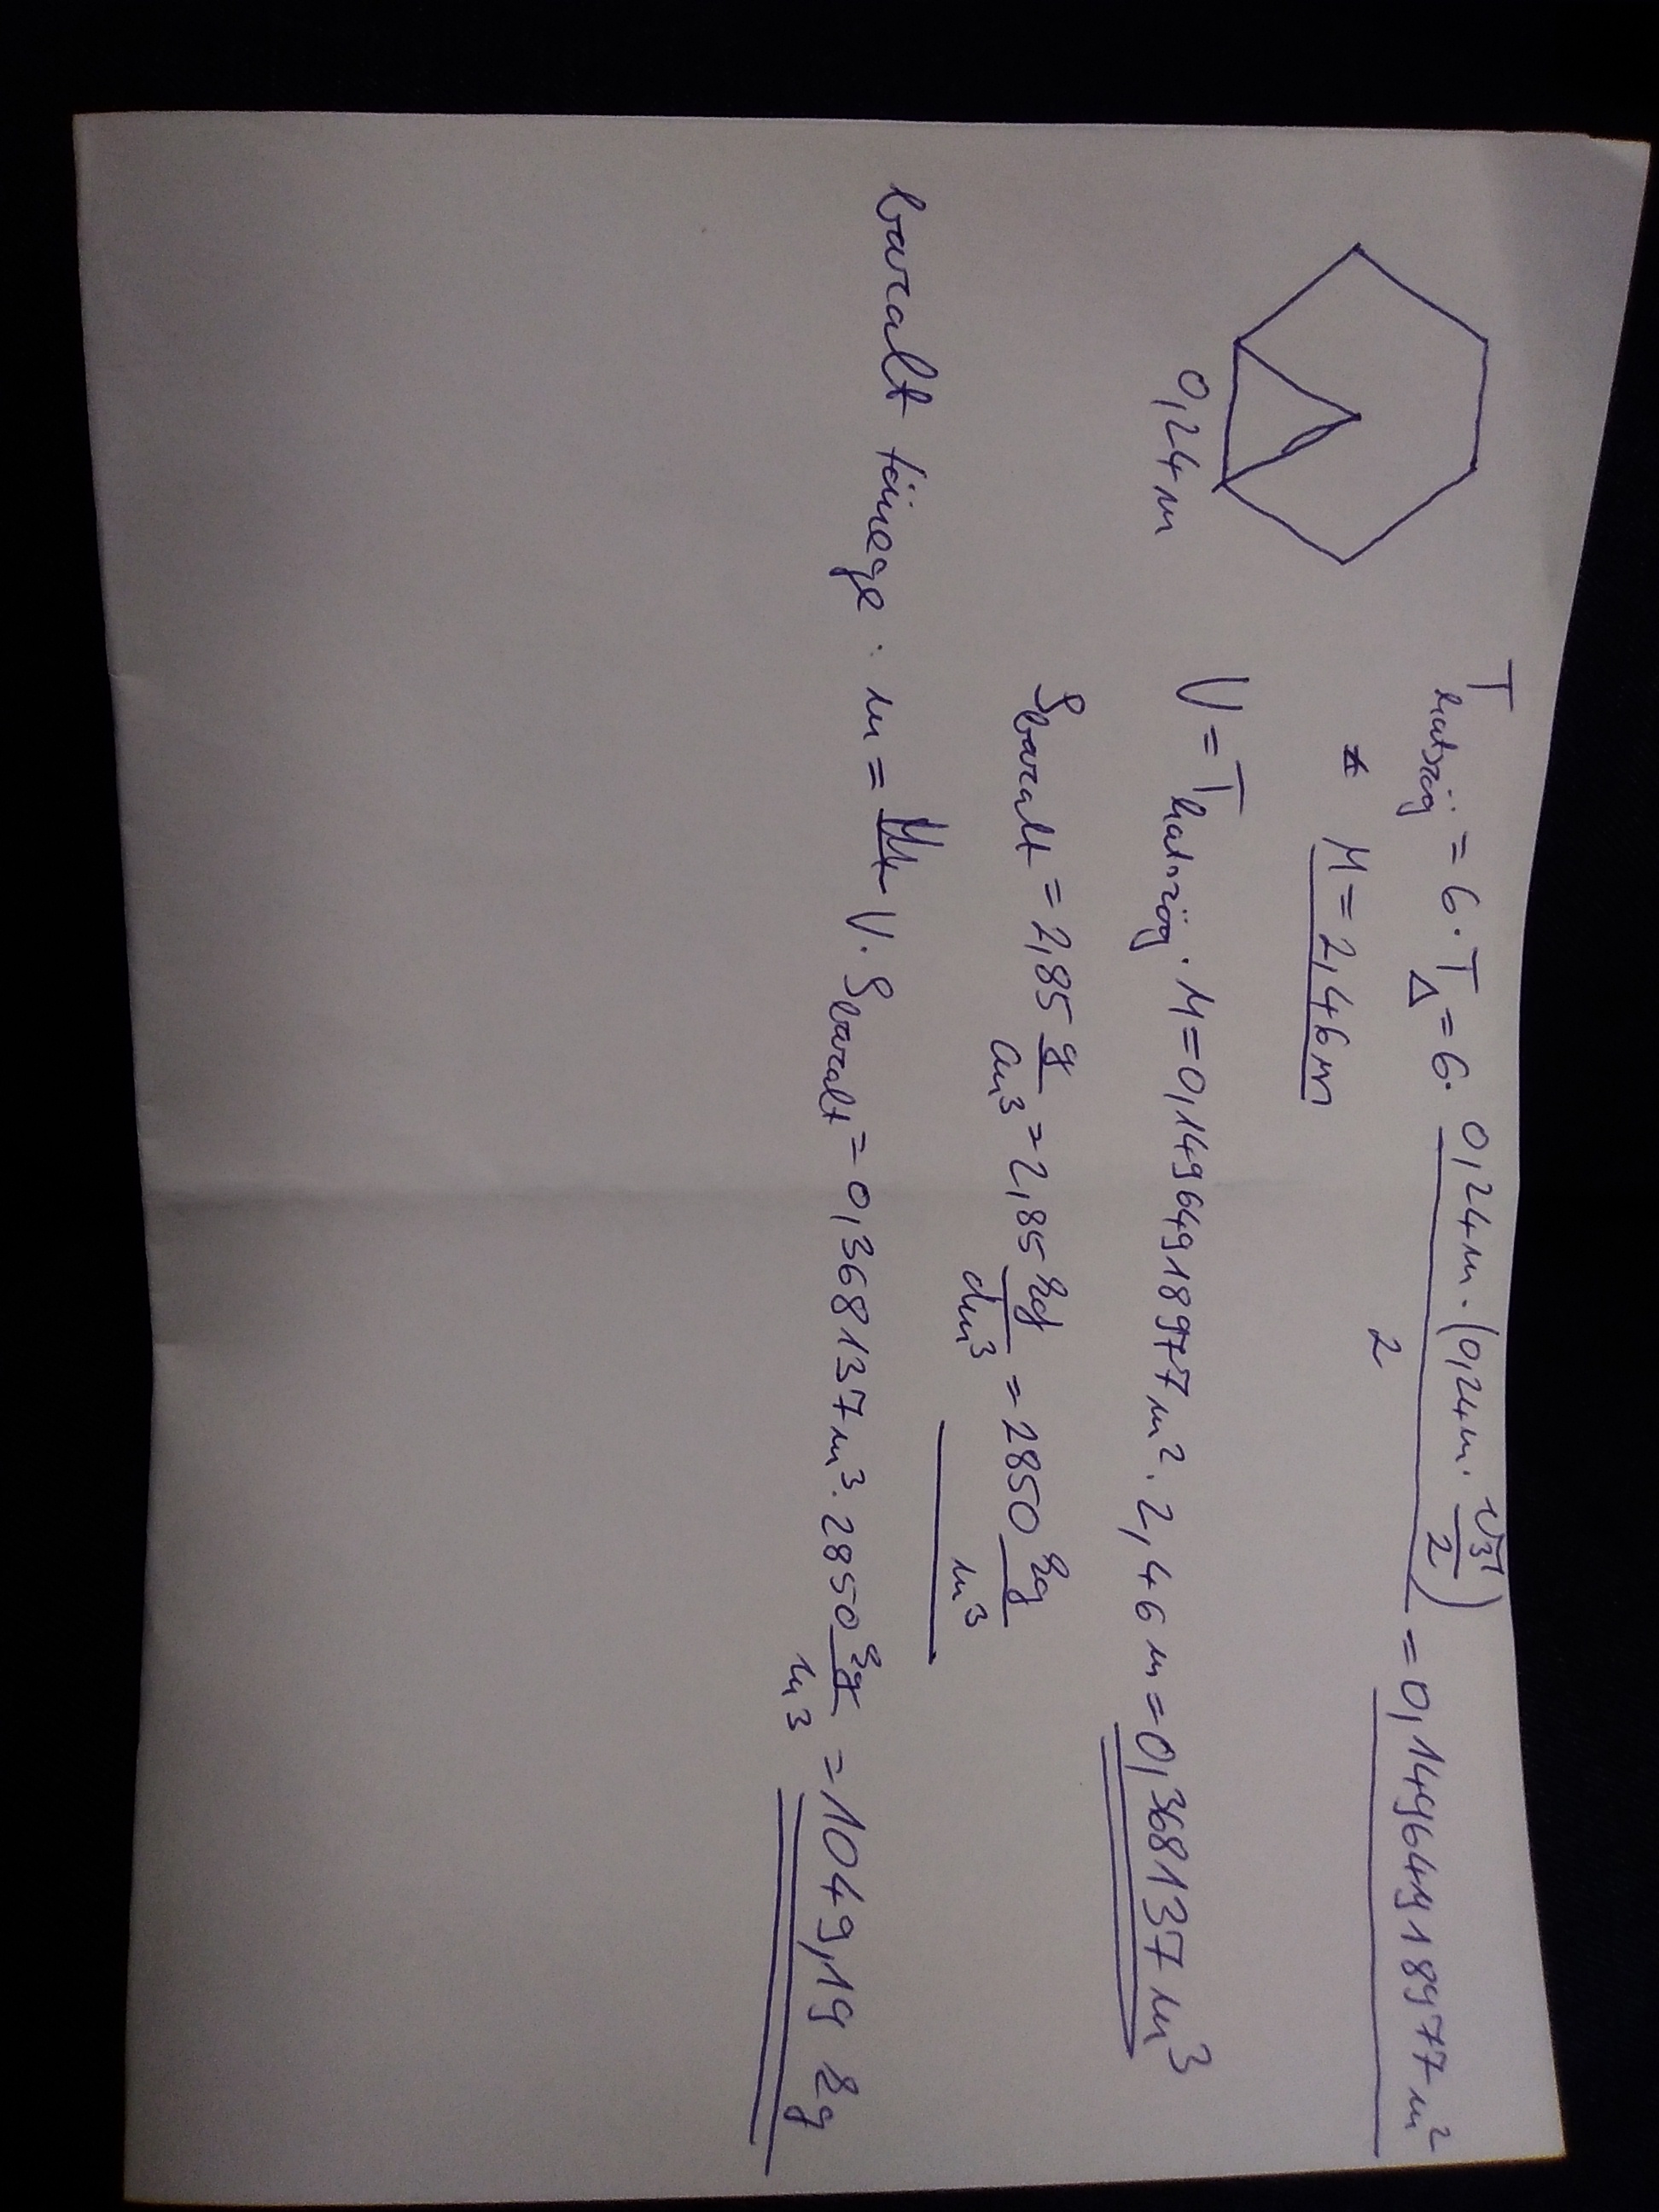 T hatszög = 6 · T△ = 6 · 0,24m · (0,24m · √3/2) / 2 = 0,1496491897 7 m²
M = 2,46m
0,24m
V = T hatszög · M = 0,14964918977 m² · 2,46 m = 0,368137 m³
ρ bazalt = 2,85 g/cm³ = 2,85 kg/dm³ = 2850 kg/m³
bazalt tömege : m = V · ρ bazalt = 0,368137 m³ · 2850 kg/m³ = 1049,19 kg